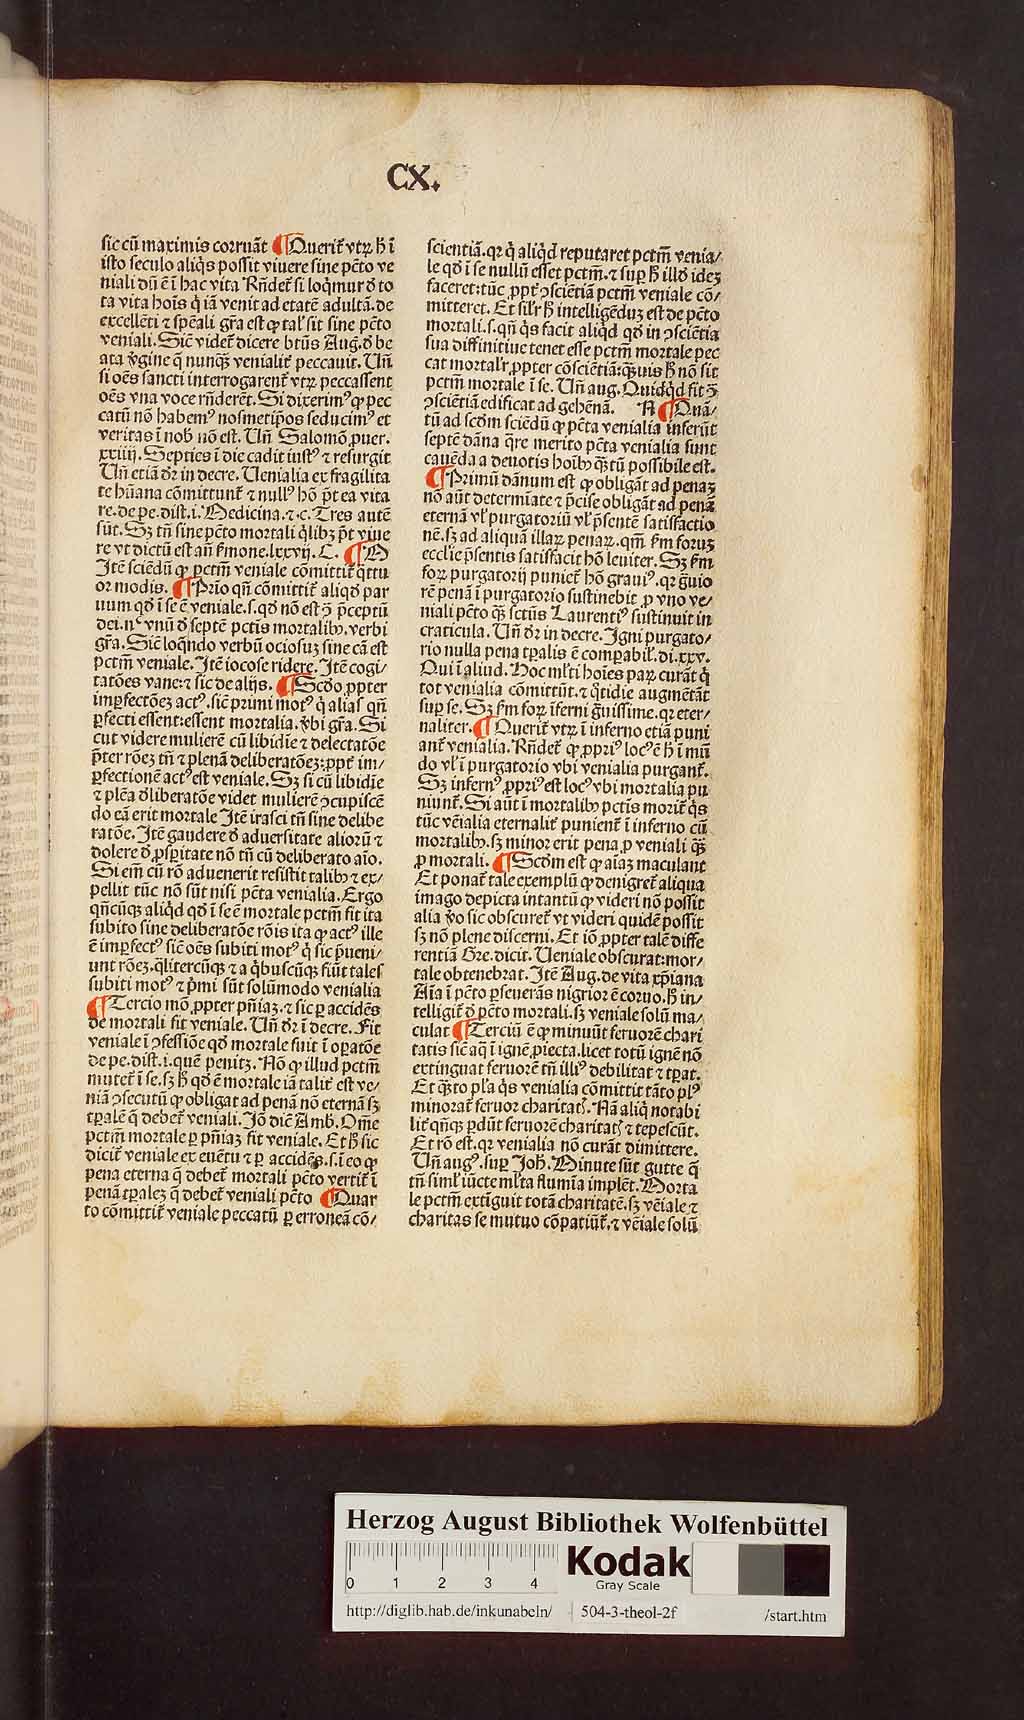 CX.
sic cū maximis corruāt ¶Querit᷑ vtꝝ h̄ ī
isto seculo aliq̇s possit viuere sine pctō ve
niali dū ē ī hac vita Rn̄det᷑ si loq̇mur ð to
ta vita hoīs q̇ iā venit ad etatē adultā. de
excellēti ⁊ spēali gr̄a est ꝙ tal᷑ sit sine pctō
veniali. Sic̄ videt᷑ dicere btūs Aug. ð be
ata v̄gine q̄ nunqꝫ venialit᷑ peccauit. Un̄
si oēs sancti interrogarent᷑ vtꝝ peccassent
oēs vna voce rn̄derēt. Si dixerimꝰ ꝙ pec
catū nō habemꝰ nosmetip̄os seducimꝰ et
veritas ī nob̄ nō est. Un̄ Salomō ꝓuer.
xxiiij. Septies ī die cadit iustꝰ ⁊ resurgit
Un̄ etiā dr̄ in decre. Uenialia ex fragilita
te hūana cōmittunt᷑ ⁊ nullꝰ hō p̄t ea vita
re. de pe. dist. i. Medicina. ⁊ c. Tres autē
sūt. Sꝫ tn̄ sine pctō mortali q̇libꝫ p̄t viue
re vt dictū est an̄ ẜmone. lxxvij. C. ¶M
Itē sciēdū ꝙ pctm̄ veniale cōmittit᷑ q̇ttu
or modis. ¶Prīo qn̄ cōmittit᷑ aliqð par
uum qð ī se ē veniale. s. qð nō est ꝯ p̄ceptū
dei. nᶜ vnū ð septē pctis mortalibꝫ. verbi
gr̄a. Sic̄ loq̄ndo verbū ociosuꝫ sine cā est
pctm̄ veniale. Itē iocose ridere. Itē cogi⸗
tatōes vane: ⁊ sic de alijs. ¶Scđo ꝓpter
imꝑfectōeꝫ actꝰ. sic̄ primi motꝰ q̇ alias qn̄
ꝑfecti essent: essent mortalia. v̄bi gr̄a. Si
cut videre mulierē cū libidie ⁊ delectatōe
p̄ter rōeꝫ tn̄ ⁊ plenā deliberatōeꝫ: ꝓpt᷑ im⸗
ꝑfectionē actꝰ est veniale. Sꝫ si cū libidīe
⁊ plēa ðliberatōe videt mulierē ꝯcupiscē
do eā erit mortale Itē irasci tn̄ sine delibe
ratōe. Itē gaudere ð aduersitate aliorū ⁊
dolere ð ꝓsꝑitate nō tn̄ cū deliberato aīo.
Si em̄ cū rō aduenerit resistit talibꝫ ⁊ ex⸗
pellit tūc nō sūt nisi pctā venialia. Ergo
qn̄cūqꝫ aliq̇d qð ī se ē mortale pctm̄ fit ita
subito sine deliberatōe rōis ita ꝙ actꝰ ille
ē imꝑfectꝰ sic̄ oēs subiti motꝰ q̇ sic p̄ueni⸗
unt rōeꝫ. q̇litercūqꝫ ⁊ a q̇buscūqꝫ fiūt tales
subiti motꝰ ⁊ p̄mi sūt solūmodo venialia
¶Tercio mō ꝓpter pn̄iaꝫ. ⁊ sic ꝑ accidēs
de mortali fit veniale. Un̄ dr̄ ī decre. Fit
veniale ī ꝯfessiōe qð mortale fuit ī oꝑatōe
de pe. dist. i. quē penitꝫ. Nō ꝙ illud pctm̄
mutet᷑ ī se. sꝫ h̄ qð ē mortale iā talit᷑ est ve⸗
niā ꝯsecutū ꝙ obligat ad penā nō eternā sꝫ
tꝑalē q̄ debet᷑ veniali. Jō dic̄ Amb. Om̄e
pctm̄ mortale ꝑ pn̄iaꝫ fit veniale. Et h̄ sic
dicit᷑ veniale ex euētu ⁊ ꝑ accidēs. s. ī eo ꝙ
pena eterna q̄ debet᷑ mortali pctō vertit᷑ ī
penā tꝑaleꝫ q̄ debet᷑ veniali pctō ¶Quar
to cōmittit᷑ veniale peccatū ꝑ erroneā cō⸗
scientiā. qꝛ q̇ aliq̇d reputaret pctm̄ venia⸗
le qð ī se nullū esset pctm̄. ⁊ suꝑ h̄ illð ideꝫ
faceret: tūc ꝓpt᷑ ꝯsciētiā pctm̄ veniale cō⸗
mitteret. Et sil̄r h̄ intelligēduꝫ est de pctō
mortali. s. qn̄ q̇s facit aliq̇d qð in ꝯsciētia
sua diffinitiue tenet esse pctm̄ mortale pec
cat mortal̄r ꝓpter cōsciētiā: q̄ꝫuis h̄ nō sit
pctm̄ mortale ī se. Un̄ aug. Quidq̇d fit ꝯ̄
ꝯsciētiā edificat ad gehēnā. N ¶Quā⸗
tū ad scđm sciēdū ꝙ pctā venialia inferūt
septē dāna q̄re merito pctā venialia sunt
cauēda a deuotis hoībꝫ q̄ꝫtū possibile est.
¶Primū dānum est ꝙ obligāt ad penaꝫ
nō aūt determīate ⁊ p̄cise obligāt ad penā
eternā vl̓ purgatoriū vl̓ p̄sentē satisfactio
nē. sꝫ ad aliquā illaꝝ penaꝝ. qm̄ ẜm foruꝫ
eccl̓ie p̄sentis satisfacit hō leuiter. Sꝫ ẜm
foꝝ purgatorij puniet᷑ hō grauiꝰ. qꝛ ḡuio
rē penā ī purgatorio sustinebit ꝓ vno ve⸗
niali pctō qꝫ sctūs Laurentiꝰ sustinuit in
craticula. Un̄ dr̄ in decre. Igni purgato⸗
rio nulla pena tꝑalis ē comꝑabil᷑. di. xxv.
Qui ī aliud. Hoc ml̓ti hoīes paꝝ curāt q̇
tot venialia cōmittūt. ⁊ q̇tidie augmētāt
suꝑ se. Sꝫ ẜm foꝝ īferni ḡuissime. qꝛ eter⸗
naliter. ¶Querit᷑ vtꝝ ī inferno etiā puni
ant᷑ venialia. Rn̄det᷑ ꝙ ꝓpriꝰ locꝰ ē h̄ ī mū
do vl̓ ī purgatorio vbi venialia purgant᷑.
Sꝫ infernꝰ ꝓpriꝰ est locꝰ vbi mortalia pu
niunt᷑. Si aūt ī mortalibꝫ pctis morit᷑ q̇s
tūc vēialia eternalit᷑ punient᷑ ī inferno cū
mortalibꝫ. sꝫ minor erit pena ꝓ veniali qꝫ
ꝓ mortali. ¶Scđm est ꝙ aīaꝫ maculant
Et ponat᷑ tale exemplū ꝙ denigret᷑ aliqua
imago depicta intantū ꝙ videri nō possit
alia v̊o sic obscuret᷑ vt videri quidē possit
sꝫ nō plene discerni. Et iō ꝓpter talē diffe
rentiā Gre. dicit. Ueniale obscurat: mor⸗
tale obtenebrat. Itē Aug. de vita xp̄iana
Aīa ī pctō ꝑseuerās nigrior ē coruo. h̄ in⸗
telligit᷑ ð pctō mortali. sꝫ veniale solū ma⸗
culat ¶Terciū ē ꝙ minuūt feruorē chari
tatis sic̄ aq̄ ī ignē ꝓiecta. licet totū ignē nō
extinguat feruorē tn̄ illiꝰ debilitat ⁊ tꝑat.
Et q̄ꝫto pl̓a q̇s venialia cōmittit tāto plꝰ
minorat᷑ feruor charitatꝭ. Nā aliq̇ notabi
lit᷑ qn̄qꝫ ꝑdūt feruorē charitatꝭ ⁊ tepescūt.
Et rō est. qꝛ venialia nō curāt dimittere.
Un̄ augꝰ. suꝑ Joh̄. Minute sūt gutte q̄
tn̄ siml̓ iūcte ml̓ta flumīa implēt. Morta
le pctm̄ extīguit totā charitatē. sꝫ vēiale ⁊
charitas se mutuo cōpatiūt᷑. ⁊ vēiale solū
Herzog August Bibliothek Wolfenbüttel
0 1 2 3 4
Kodak
Gray Scale
http://diglib.hab.de/inkunabeln/ 504-3-theol-2f /start.htm